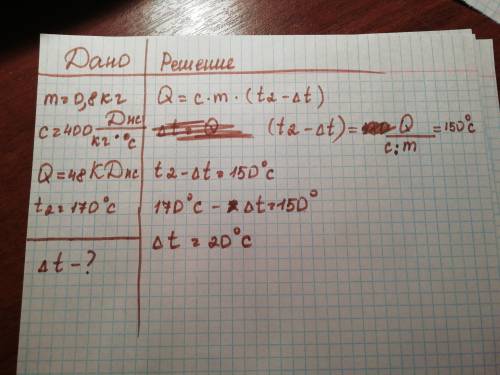 Дано
m=0,8кг
c=400 Дж/кг·°с
Q=48КДж
t2=170°с
Δt-?
Решение
Q=c·m·(t2-Δt)
(t2-Δt)= Q/c:m =150°с
t2-Δt=150°с
170°с - Δt=150°
Δt=20°с